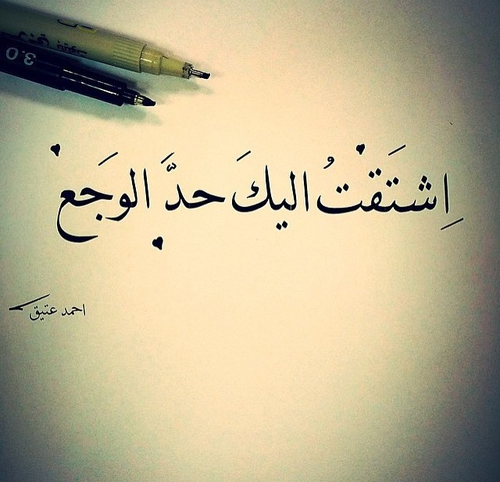 3.0
اِشتَقتُ اليكَ حدَّ الوجَع
احمد عتيق